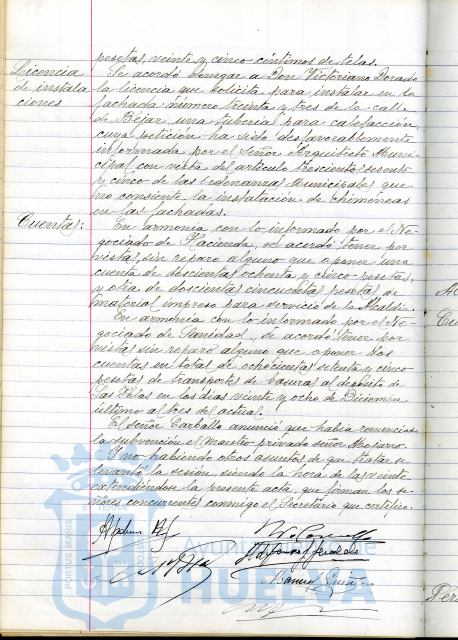 pesetas, veinte y cinco céntimos de telas.
Licencia de instalaciones
Se acordó denegar a Don Victoriano Dorado
la licencia que solicita para instalar en la
fachada número treinta y tres de la calle
de Béjar, una tubería para calefacción,
cuya petición ha sido desfavorablemente
informada por el Señor Arquitecto Muni-
cipal con vista del artículo trescientos sesenta
y cinco de las Ordenanzas Municipales que
no consiente la instalación de chimeneas
en las fachadas.
Cuentas:
En armonía con lo informado por el Ne-
gociado de Hacienda, se acordó tener por
vistas, sin reparo alguno que oponer una
cuenta de doscientas ochenta y cinco pesetas,
y otra de doscientas cincuenta pesetas de
material impreso para servicio de la Alcaldía.
En armonía con lo informado por el Ne-
gociado de Sanidad, se acordó tener por
vistas sin reparo alguno que oponer dos
cuentas en total de ochocientas setenta y cinco
pesetas de transportes de basuras al depósito de
Las Polas en los días veinte y ocho de Diciembre
último al tres del actual.
El señor Carballo anunció que había renunciado
la subvención el Maestro privado señor
Y no habiendo otros asuntos de que tratar se
levantó la sesión, siendo la hora de las veinte
extendiéndose la presente acta, que firman los se-
ñores concurrentes conmigo el Secretario que certifico.
Manuel
PORTUS MARIS
Ayuntamiento de
HUELVA
Cu
Per